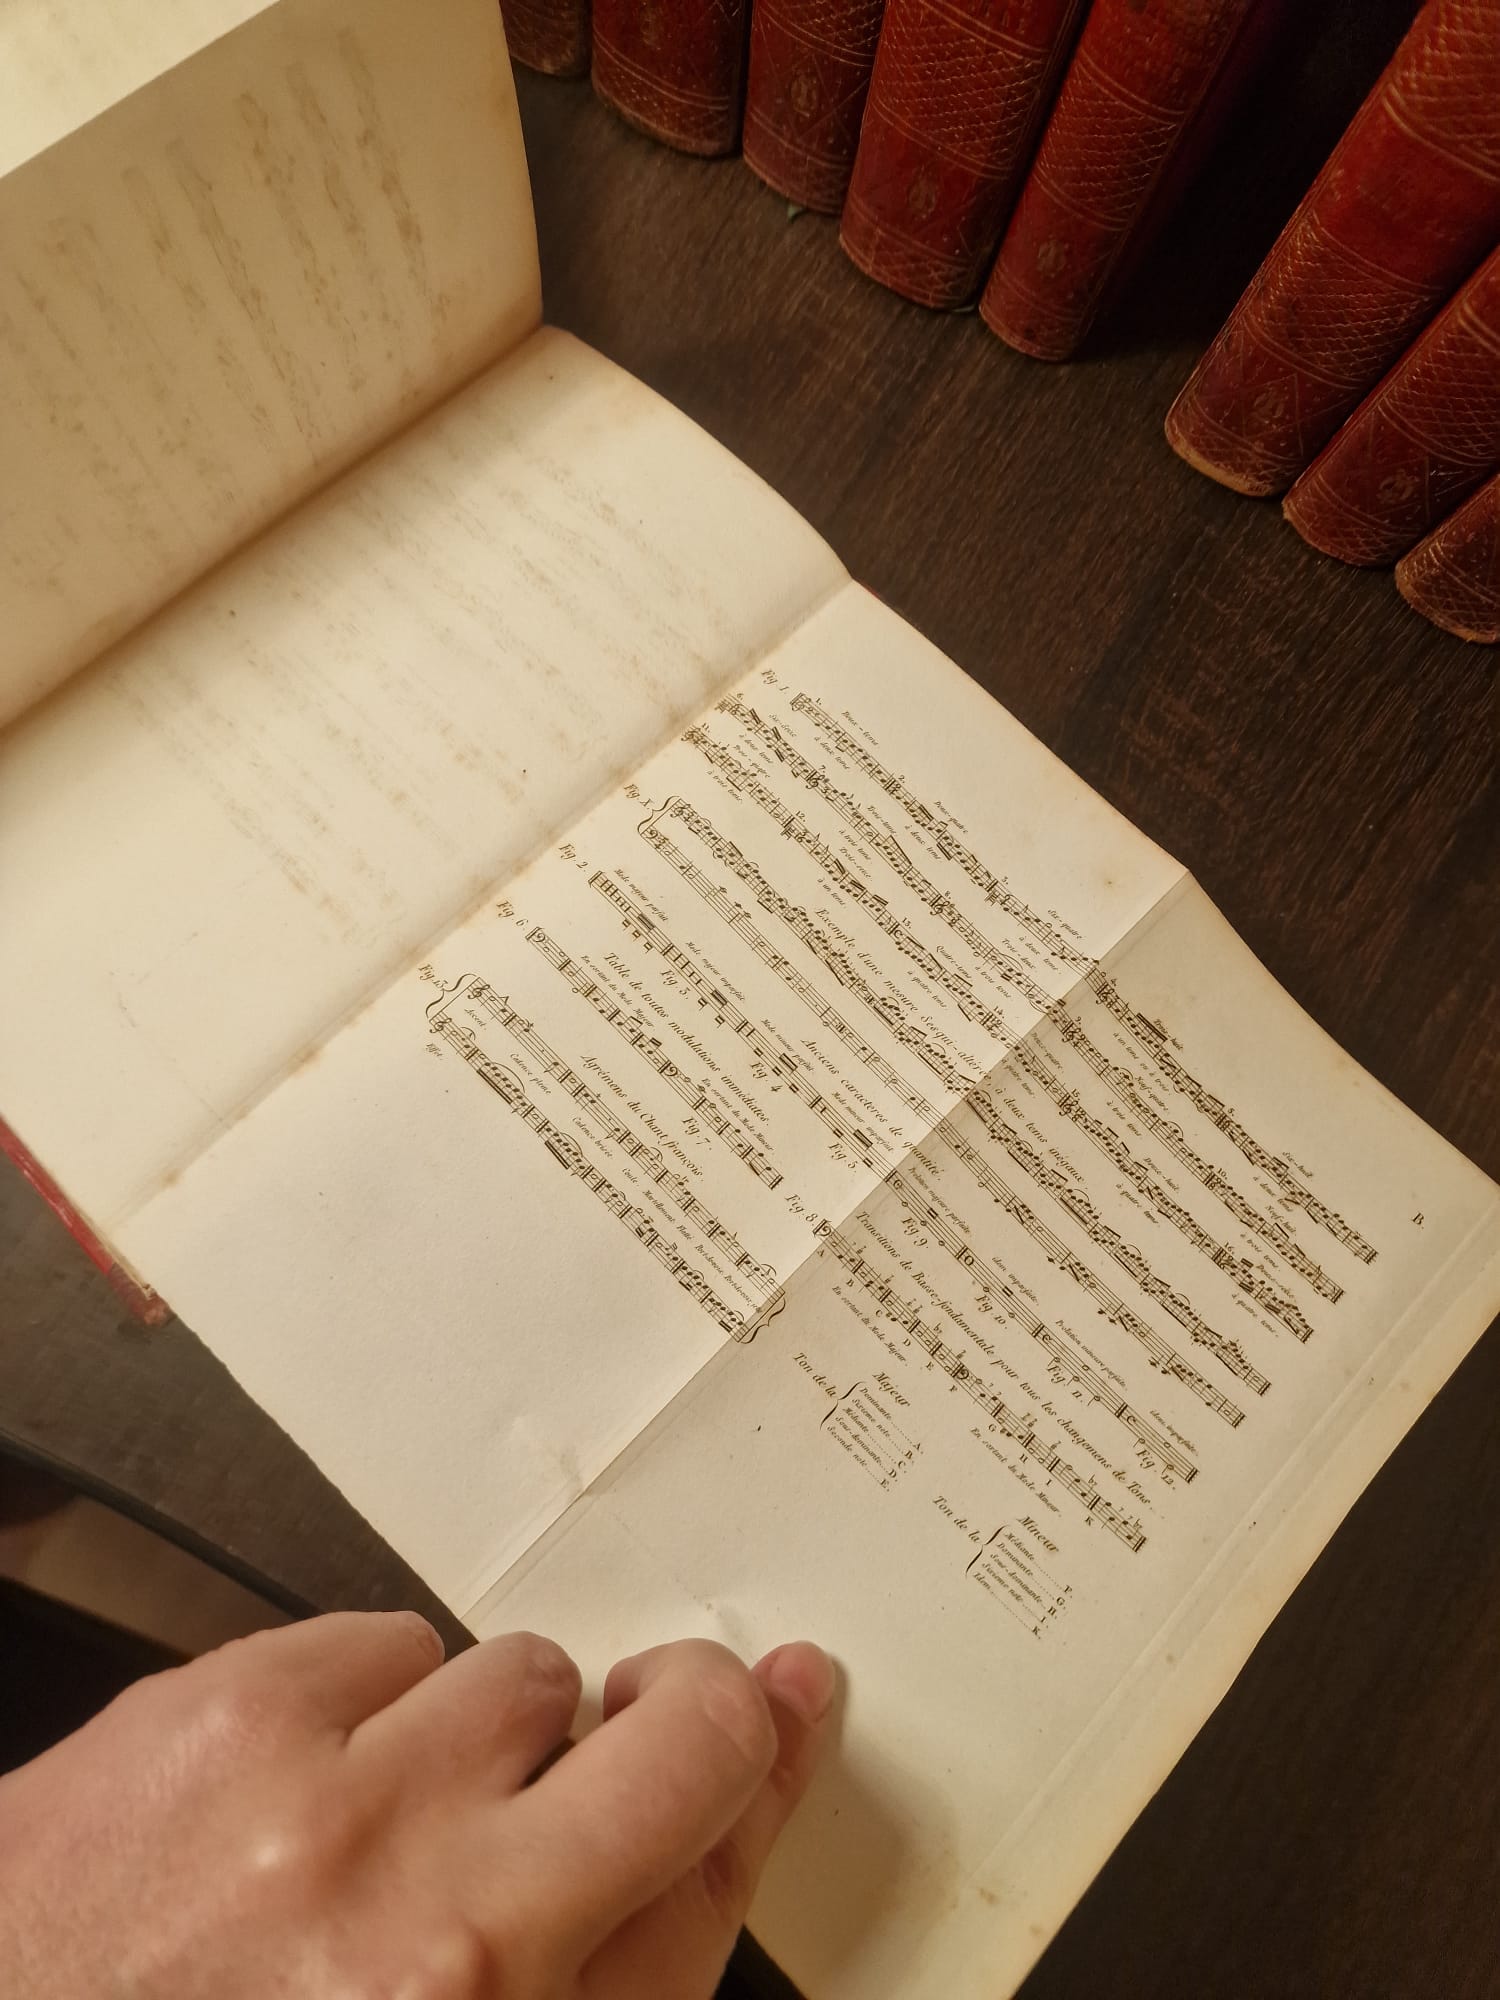 B.
Fig. 1.
1. Deux-tems 2. Deux-quatre. 3. Six-quatre 4. Trois-huit. 5. Six-huit
à deux tems à deux tems à deux tems à un tems ou à trois à deux tems
6. Six-seize 7. Trois-tems 8. Trois-deux 9. Neuf-quatre. 10. Neuf-huit
à deux tems à trois tems à trois tems à trois tems à trois tems
11. 12. Trois-seize 13. Quatre-tems 14. Douze-quatre. 15. Douze-huit 16. Douze-seize
à trois tems. à un tems à quatre tems à quatre tems à quatre tems à quatre tems.
Fig. X.
Exemple d'une mesure Sesqui-altère, à deux tems inégaux.
Anciens caracteres de quantité.
Fig. 2. Mode majeur parfait Fig. 3. Mode majeur imparfait. Fig. 4 Mode mineur parfait Fig. 5. Mode mineur imparfait.
Prolation majeure parfaite. idem imparfaite. Prolation mineure parfaite. idem imparfaite.
Table de toutes modulations immédiates.
Fig. 6. En sortant du Mode Majeur Fig. 7. En sortant du Mode Mineur.
Fig. 9. Fig. 10. Fig. 11. Fig. 12.
Transitions de Basse-fondamentale pour tous les changemens de Tons.
Fig. 8.
A B C D E F G H I K
En sortant du Mode Majeur. En sortant du Mode Mineur.
Agrémens du Chant françois.
Accent. Cadence pleine. Cadence brisée Coulé. Martellement. Flatté.
Effet.
Majeur
Ton de la
Dominante A.
Sixieme note B.
Médiante C.
Sous-dominante D.
Seconde note E.
Mineur
Ton de la
Médiante F.
Dominante G.
Sous-dominante H.
Sixieme note I.
Idem K.